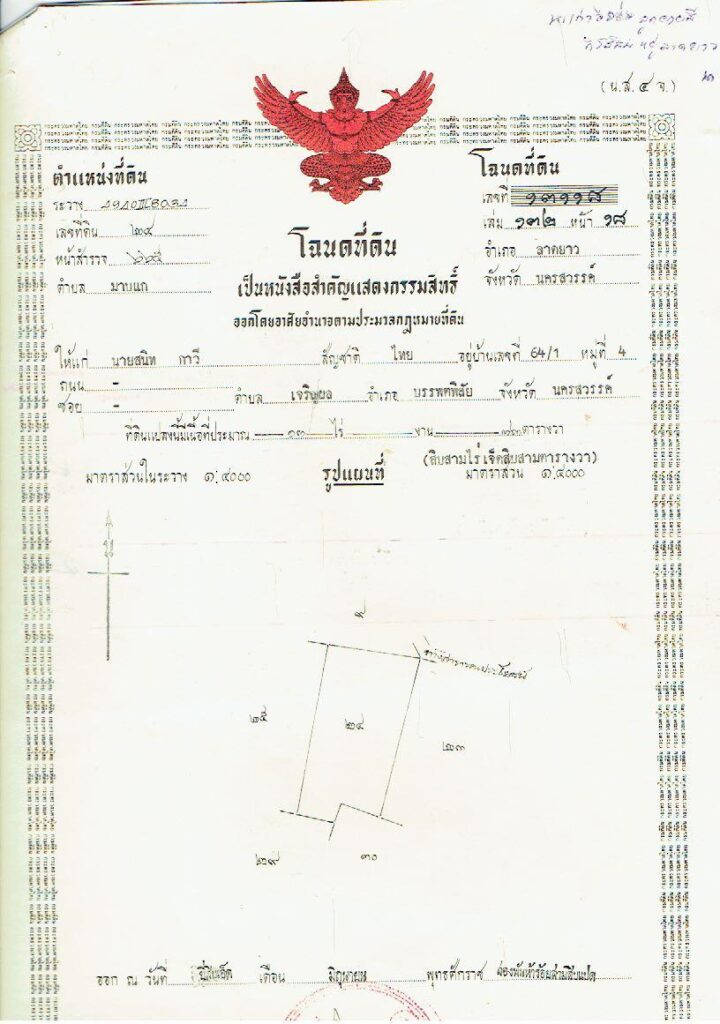 (น.ส.๔ จ.)
ตำแหน่งที่ดิน
ระวาง
เลขที่ดิน ๒๔
หน้าสำรวจ
ตำบล มาบแก
โฉนดที่ดิน
เลขที่ ๑๓๑๑๘
เล่ม ๑๓๒ หน้า ๑๘
อำเภอ ลาดยาว
จังหวัด นครสวรรค์
โฉนดที่ดิน
เป็นหนังสือสำคัญแสดงกรรมสิทธิ์
ออกโดยอาศัยอำนาจตามประมวลกฎหมายที่ดิน
ให้แก่ นายสนิท กาวี สัญชาติ ไทย อยู่บ้านเลขที่ 64/1 หมู่ที่ 4
ถนน -
ซอย - ตำบล เจริญผล อำเภอ บรรพตพิสัย จังหวัด นครสวรรค์
ที่ดินแปลงนี้มีเนื้อที่ประมาณ ๑๓ ไร่ - งาน ๗๓ ตารางวา
(สิบสามไร่ เจ็ดสิบสามตารางวา)
มาตราส่วนในระวาง ๑:๔๐๐๐ รูปแผนที่ มาตราส่วน ๑:๔๐๐๐
๒๕
๒๔
๒๓
๒๙
๓๐
ออก ณ วันที่ ยี่สิบเอ็ด เดือน มิถุนายน พุทธศักราช สองพันห้าร้อยสามสิบแปด